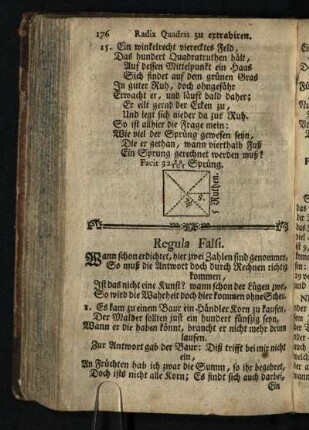 176 Radix Quadrat zu extrahiren.
15. Ein winkelrecht viereckes Feld,
Das hundert Quadratruthen hält,
Auf dessen Mittelpunkt ein Haas
Sich findet auf dem grünen Gras
In guter Ruh, doch ohngefähr
Erwacht er, und läuft bald daher;
Er eilt gerad der Ecken zu,
Und legt sich nieder da zur Ruh.
So ist allhier die Frage mein:
Wie viel der Sprüng gewesen seyn,
Die er gethan, wann vierthalb Fuß
Ein Sprung gerechnet werden muß?
Facit 32 Sprüng.
5 Ruthen.
Regula Falsi.
Wann schon erdichtet, hier zwei Zahlen sind genommen,
So muß die Antwort doch durch Rechnen richtig
kommen,
Ist das nicht eine Kunst? wann schon der Lügen zwo,
So wird die Wahrheit doch hier kommen ohne
1. Es kam zu einem Baur ein Händler Korn zu kaufen,
Der Malder sollten just ein hundert fünfzig seyn,
Wann er die haben könnt, braucht er nicht mehr denn
laufen.
Zur Antwort gab der Baur: Diß trifft bei mir nicht
ein,
An Früchten hab ich zwar die Summ, so ihr begehret,
Doch ists nicht alle Korn; Es findt sich auch darbe,
Ein